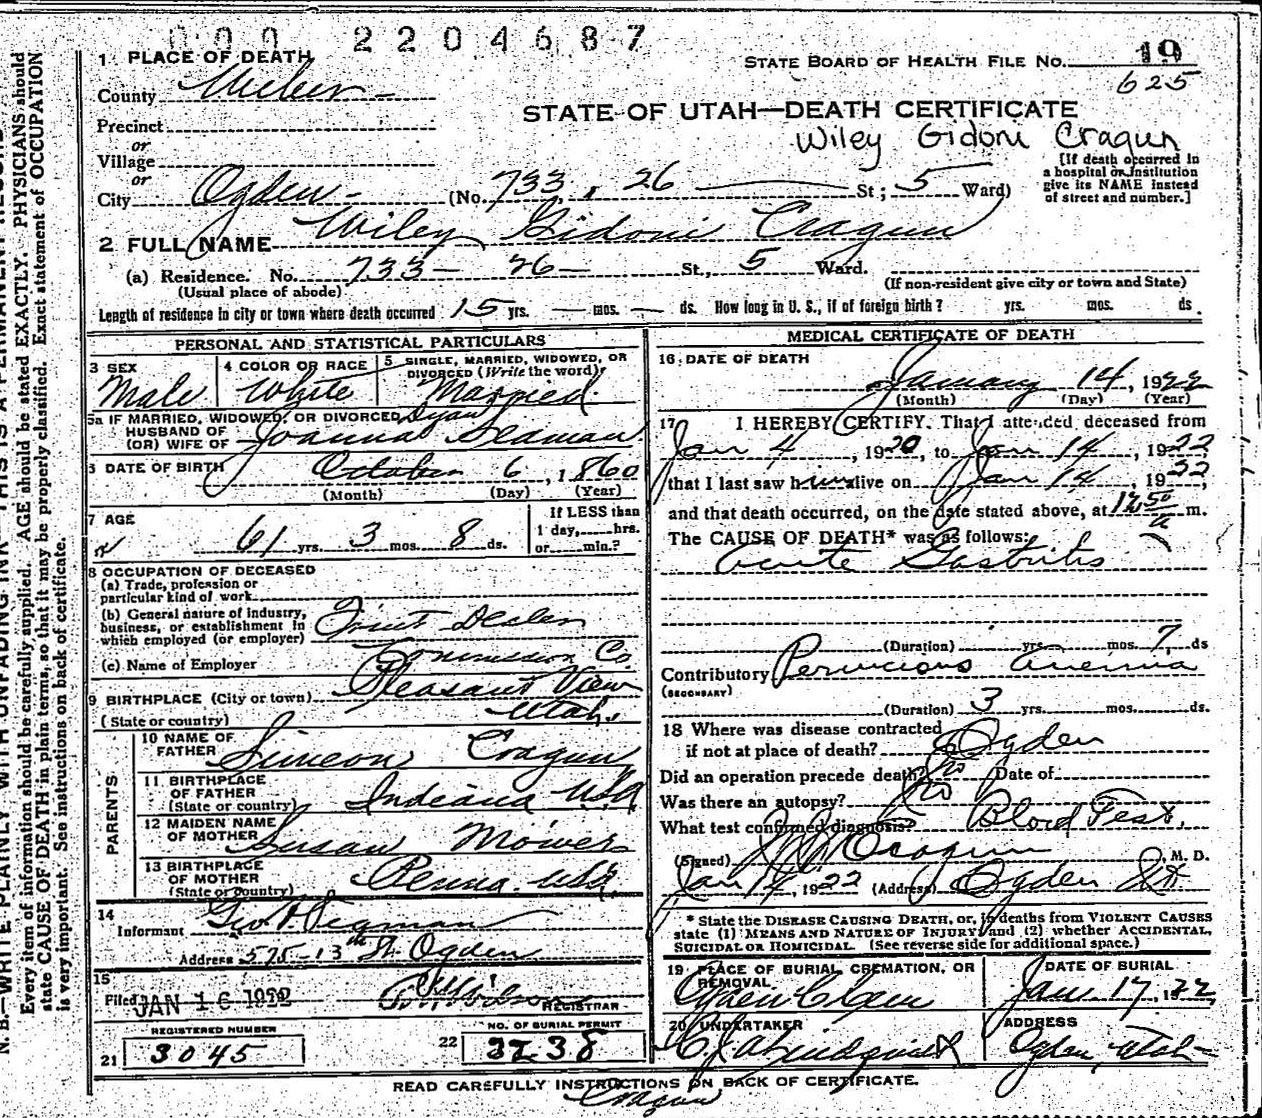 000 2204687
1 PLACE OF DEATH
STATE BOARD OF HEALTH FILE No. 19
625
County Weber
STATE OF UTAH—DEATH CERTIFICATE
Precinct
Wiley Gidoni Cragun
or
Village
or
[If death occurred in
a hospital or institution
give its NAME instead
of street and number.]
City Ogden (No. 733, 26 St; 5 Ward)
2 FULL NAME Wiley Gidoni Cragun
(a) Residence. No. 733 - 26 - St., 5 Ward.
(Usual place of abode)
(If non-resident give city or town and State)
Length of residence in city or town where death occurred 15 yrs. — mos. — ds. How long in U. S., if of foreign birth? yrs. mos. ds.
PERSONAL AND STATISTICAL PARTICULARS
3 SEX
Male
4 COLOR OR RACE
White
5 SINGLE, MARRIED, WIDOWED, OR
DIVORCED (Write the word)
Married.
5a IF MARRIED, WIDOWED, OR DIVORCED
HUSBAND OF
(OR) WIFE OF Joanna
6 DATE OF BIRTH October 6, 1860
(Month) (Day) (Year)
7 AGE
61 yrs. 3 mos. 8 ds.
If LESS than
1 day,......hrs.
or......min.?
8 OCCUPATION OF DECEASED
(a) Trade, profession or
particular kind of work
(b) General nature of industry,
business, or establishment in
which employed (or employer) Fruit Dealer
(c) Name of Employer Commission Co.
9 BIRTHPLACE (City or town) Pleasant View
(State or country) Utah.
PARENTS
10 NAME OF
FATHER Simeon Cragun
11 BIRTHPLACE
OF FATHER
(State or country) Indiana USA
12 MAIDEN NAME
OF MOTHER Susan Mower
13 BIRTHPLACE
OF MOTHER
(State or country) Penna. USA
14
Informant Geo.
Address 575-13th St. Ogden
15
Filed JAN 16 1922
REGISTRAR
REGISTERED NUMBER
21 3045
NO. OF BURIAL PERMIT
22 3238
MEDICAL CERTIFICATE OF DEATH
16 DATE OF DEATH
January 14, 1922
(Month) (Day) (Year)
17 I HEREBY CERTIFY. That I attended deceased from
Jan 4, 1920, to Jan 14, 1922
that I last saw him alive on Jan 14, 1922,
and that death occurred, on the date stated above, at 12:50 a m.
The CAUSE OF DEATH* was as follows:
Acute Gastritis
(Duration) yrs. mos. 7 ds
Contributory Pernicious Anemia
(SECONDARY)
(Duration) 3 yrs. mos. ds.
18 Where was disease contracted
if not at place of death? Ogden
Did an operation precede death? No Date of
Was there an autopsy? No
What test confirmed diagnosis? Blood Test.
(Signed) M. D.
Jan 14, 1922 (Address) Ogden Ut
* State the DISEASE CAUSING DEATH, or, in deaths from VIOLENT CAUSES
state (1) MEANS AND NATURE OF INJURY; and (2) whether ACCIDENTAL,
SUICIDAL OR HOMICIDAL. (See reverse side for additional space.)
19 PLACE OF BURIAL, CREMATION, OR
REMOVAL
Ogden
DATE OF BURIAL
Jan. 17, 1922
20 UNDERTAKER
Lindquist
ADDRESS
Ogden, Utah
READ CAREFULLY INSTRUCTIONS ON BACK OF CERTIFICATE.
Cragun
N. B.—WRITE PLAINLY, WITH UNFADING INK—THIS IS A PERMANENT RECORD
Every item of information should be carefully supplied. AGE should be stated EXACTLY. PHYSICIANS should
state CAUSE OF DEATH in plain terms, so that it may be properly classified. Exact statement of OCCUPATION
is very important. See instructions on back of certificate.